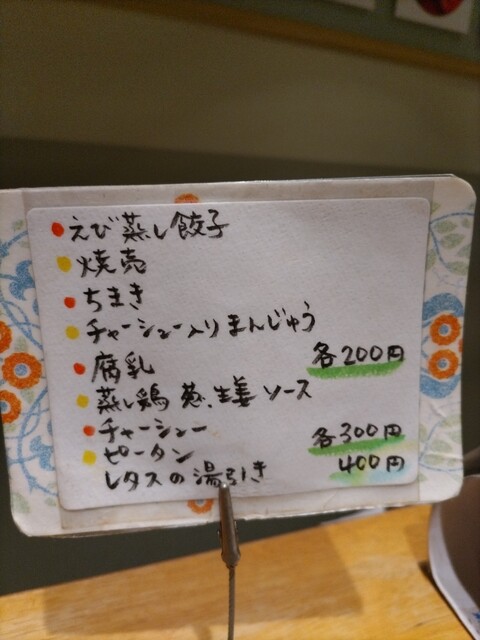 えび蒸し餃子
焼売
ちまき
チャーシュー入りまんじゅう
腐乳 各200円
蒸し鶏 葱、生姜ソース
チャーシュー 各300円
ピータン
レタスの湯引き 400円